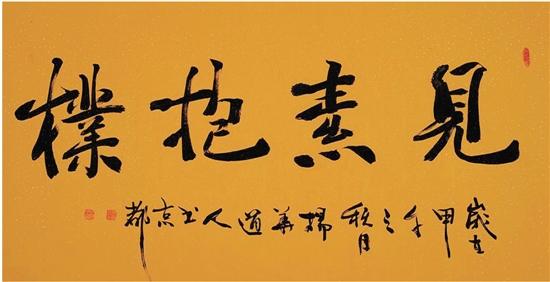 見素抱樸
歲在甲午之秋月楊華道人书京都